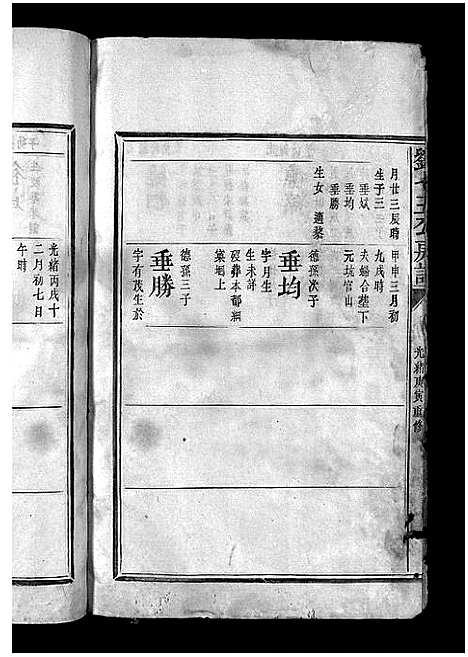 月廿三辰時
生子三
垂斌
垂均
垂勝
生女 適黎
甲申三月初
九戌時
夫婦合塟下
元坑官山
德孫次子
垂均
字月生
生未詳
殁葬本都
棠垇上
德孫三子
垂勝
字有茂生於
光緒丙戌十
二月初七日
午時
光緒庚寅重修